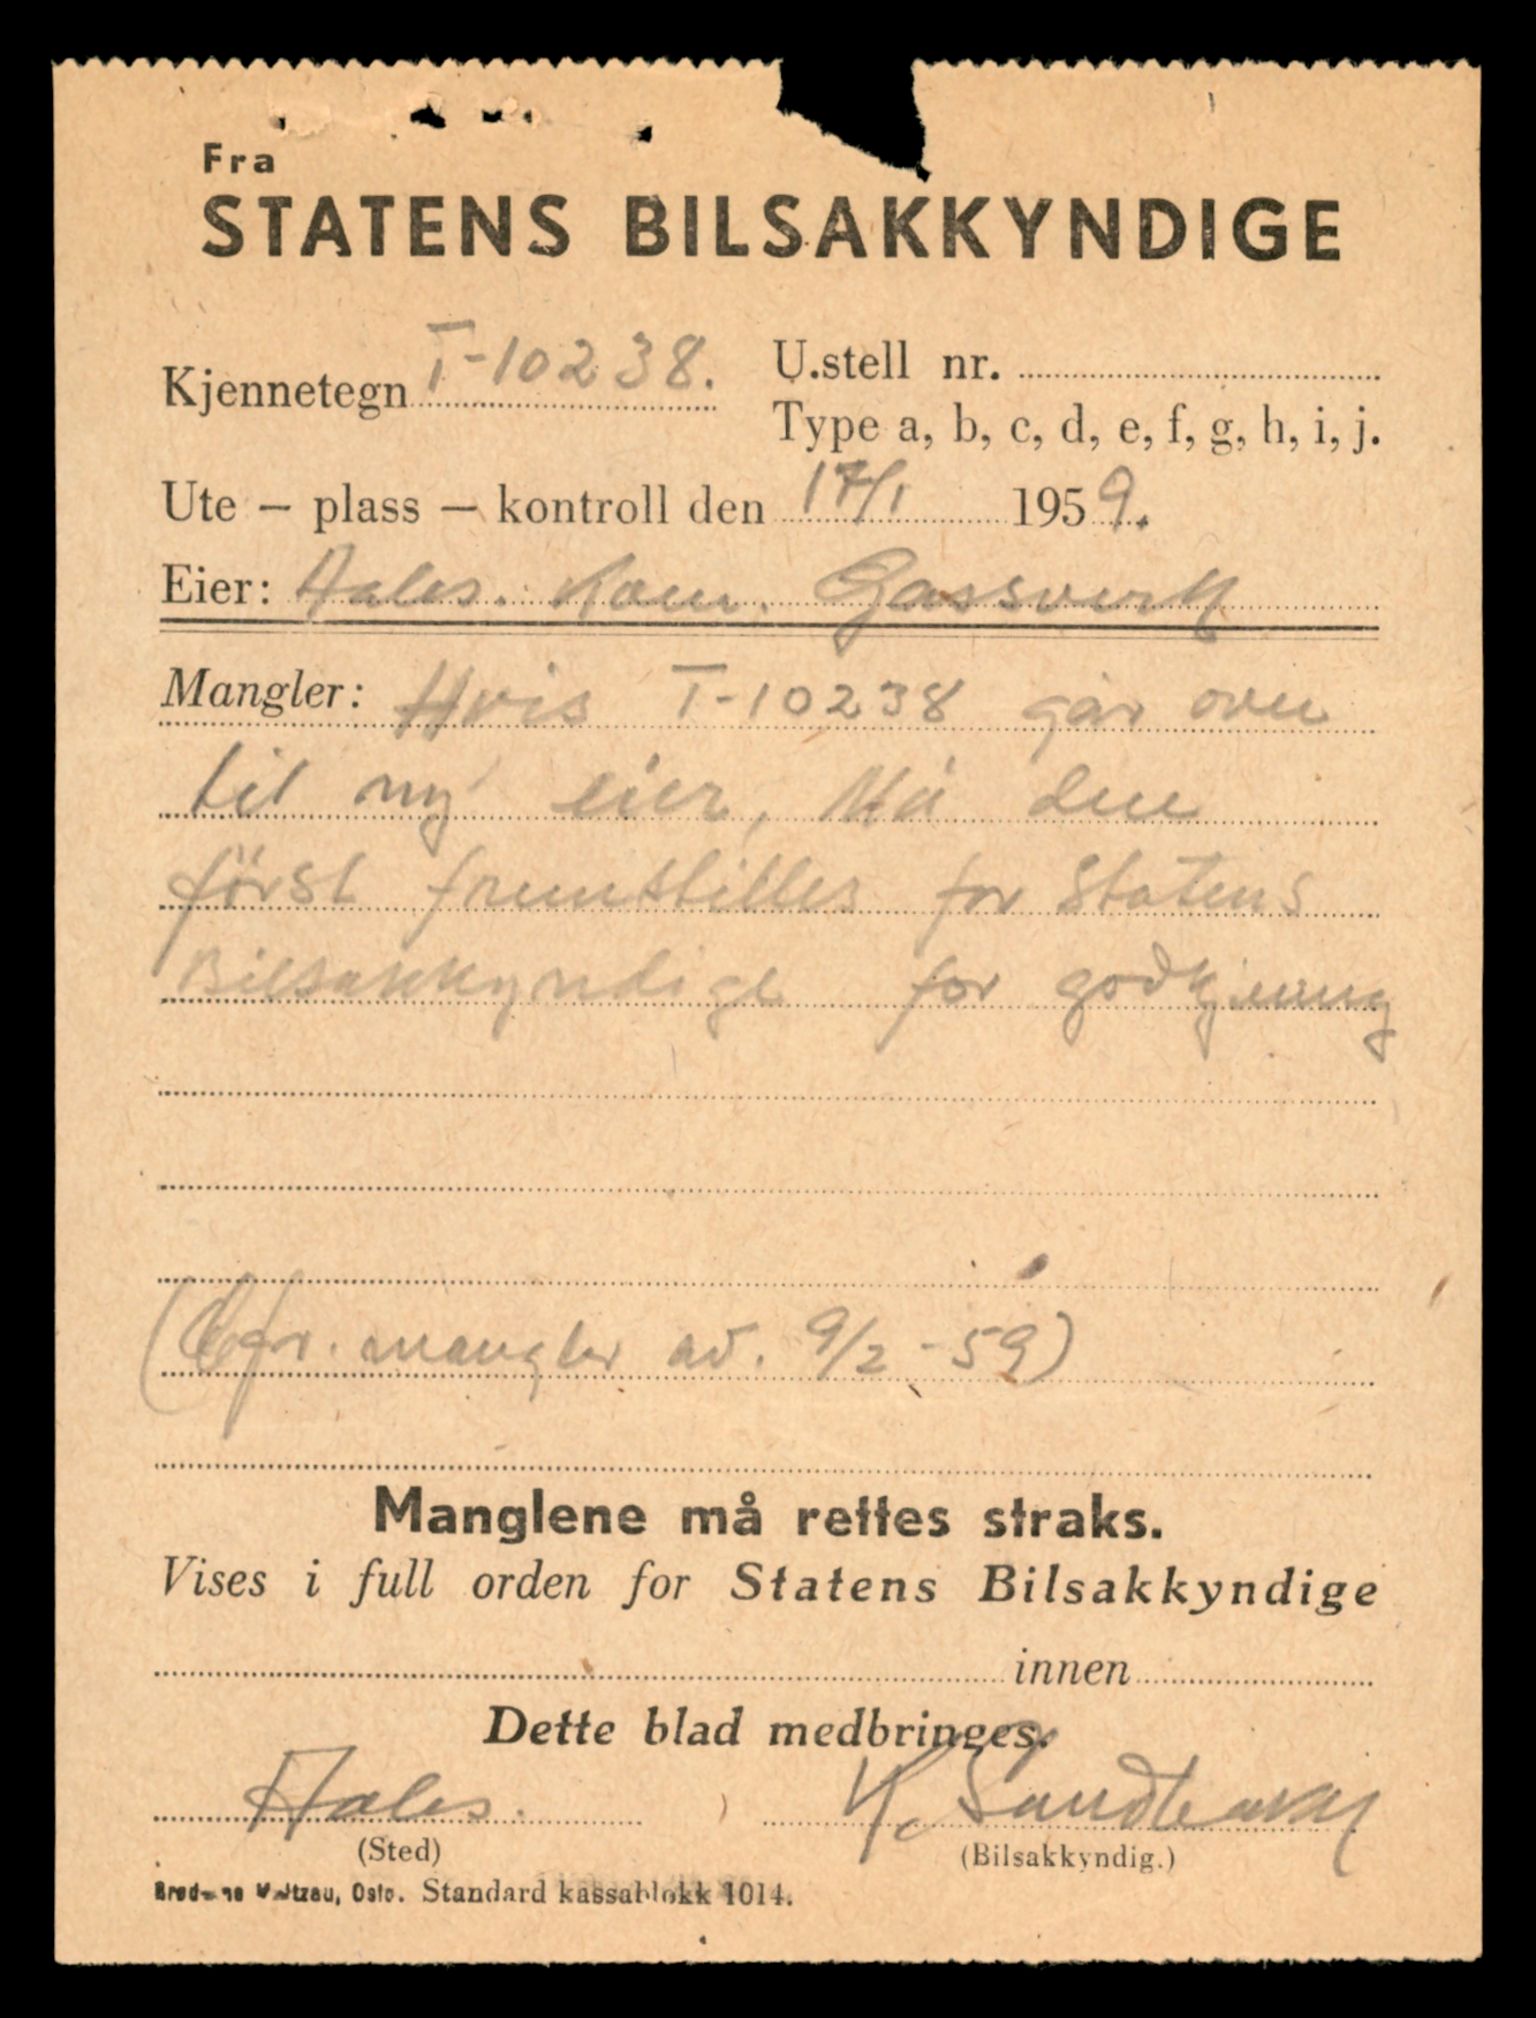 Fra
STATENS BILSAKKYNDIGE
Kjennetegn T-10238. U.stell nr.
Type a, b, c, d, e, f, g, h, i, j.
Ute – plass – kontroll den 17/1 1959.
Eier: Aales. Kom. Gassverk
Mangler: Hvis T-10238 går over
til ny eier, Må den
først fremstilles for Statens
Bilsakkyndige for godkjenning
(Cfr. mangler av. 9/2-59)
Manglene må rettes straks.
Vises i full orden for Statens Bilsakkyndige
innen
Dette blad medbringes.
Aales. K.
(Sted) (Bilsakkyndig.)
Oslo. Standard kassablokk 1014.